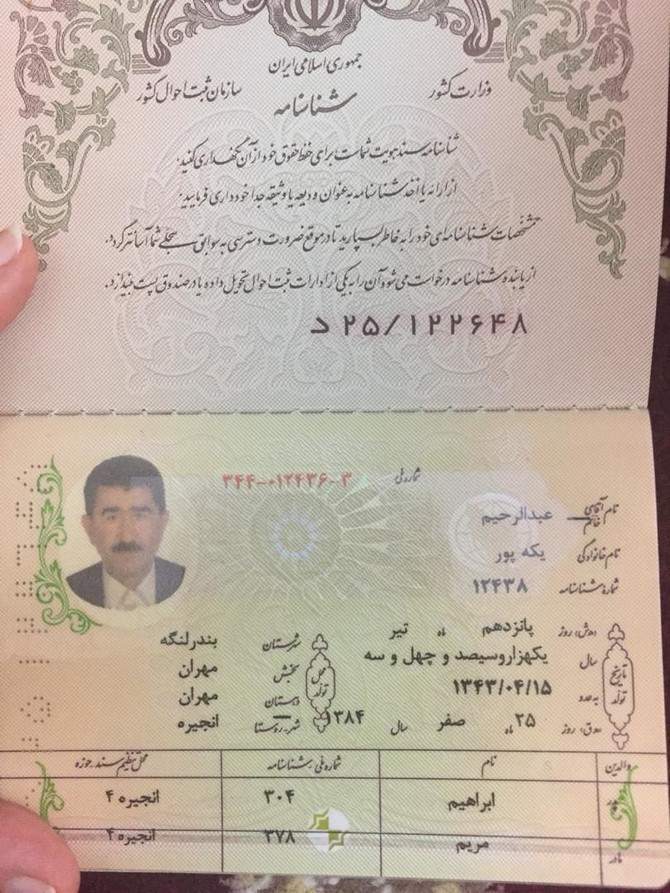 جمهوری اسلامی ایران
وزارت کشور
سازمان ثبت احوال کشور
شناسنامه
شناسنامه سند هویت شماست برای حفظ حقوق خود از آن نگهداری کنید.
از ارائه یا اخذ شناسنامه به عنوان ودیعه یا وثیقه جداً خودداری فرمایید.
مشخصات شناسنامه‌ای خود را به خاطر بسپارید تا در موقع ضرورت دسترسی به سوابق سجلی شما آسانتر گردد.
از یابنده شناسنامه درخواست می‌شود آن را به یکی از ادارات ثبت احوال تحویل داده یا در صندوق پست بیندازد.
د ۲۵/۱۲۲۶۴۸
شماره ملی ۳۴۴-۰۱۲۴۳۶-۳
نام آقای خانم عبدالرحیم
نام خانوادگی یکه پور
شماره شناسنامه ۱۲۴۳۸
تاریخ تولد
ه‍.ش: روز پانزدهم ماه تیر
سال یکهزاروسیصد و چهل و سه
به عدد ۱۳۴۳/۰۴/۱۵
ه‍.ق: روز ۲۵ ماه صفر سال ۱۳۸۴
محل تولد
شهرستان بندرلنگه
بخش مهران
دهستان مهران
شهر-روستا انجیره
والدین نام شماره ملی-شناسنامه محل تنظیم سند حوزه
پدر ابراهیم ۳۰۴ انجیره ۴
مادر مریم ۳۷۸ انجیره ۴